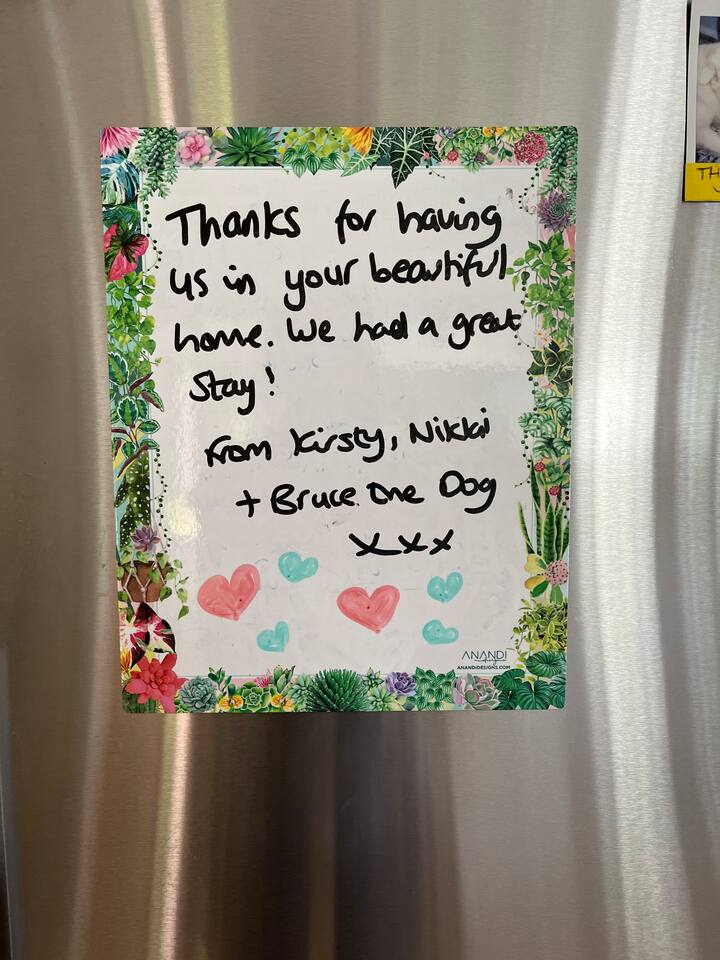 Thanks for having
us in your beautiful
home. We had a great
Stay!
From Kirsty, Nikki
+ Bruce the Dog
xxx
ANANDI
ANANDIDESIGNS.COM
TH